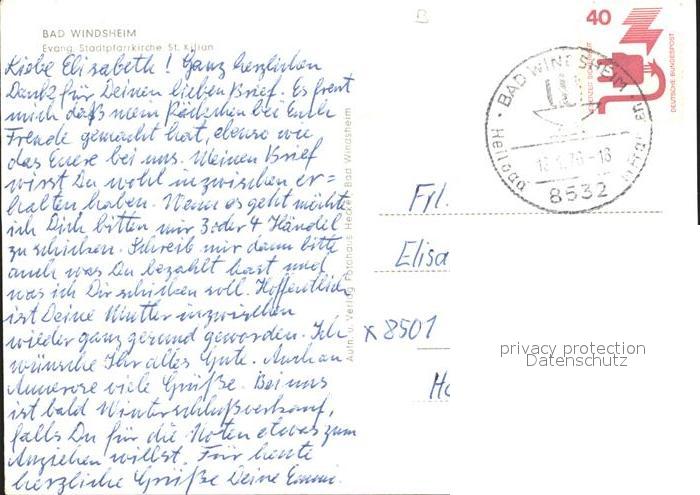 BAD WINDSHEIM
Evang. Stadtpfarrkirche St. Kilian
Liebe Elisabeth! Ganz herzlichen
Dank für Deinen lieben Brief. Es freut
mich daß mein Päckchen bei Euch
Freude gemacht hat, ebenso wie
das Euere bei uns. Meinen Brief
wirst Du wohl inzwischen er=
halten haben. Wenn es geht möchte
ich Dich bitten mir 3 oder 4 Händel
zu schicken. Schreib mir dann bitte
auch was Du bezahlt hast und
was ich Dir schicken soll. Hoffentlich
ist Deine Mutter inzwischen
wieder ganz gesund geworden. Ich
wünsche Ihr alles Gute. Auch an
Annerose viele Grüße. Bei uns
ist bald Winterschlußverkauf,
falls Du für die Noten etwas zum
Anziehen willst. Für heute
herzliche Grüße Deine Emmi.
Aufn. u. Verlag Fotohaus Heckel, Bad Windsheim
40
DEUTSCHE BUNDESPOST
BAD WINDSHEIM
Heilbad
8532
Frl.
Elisa
x 8501
privacy protection
Datenschutz